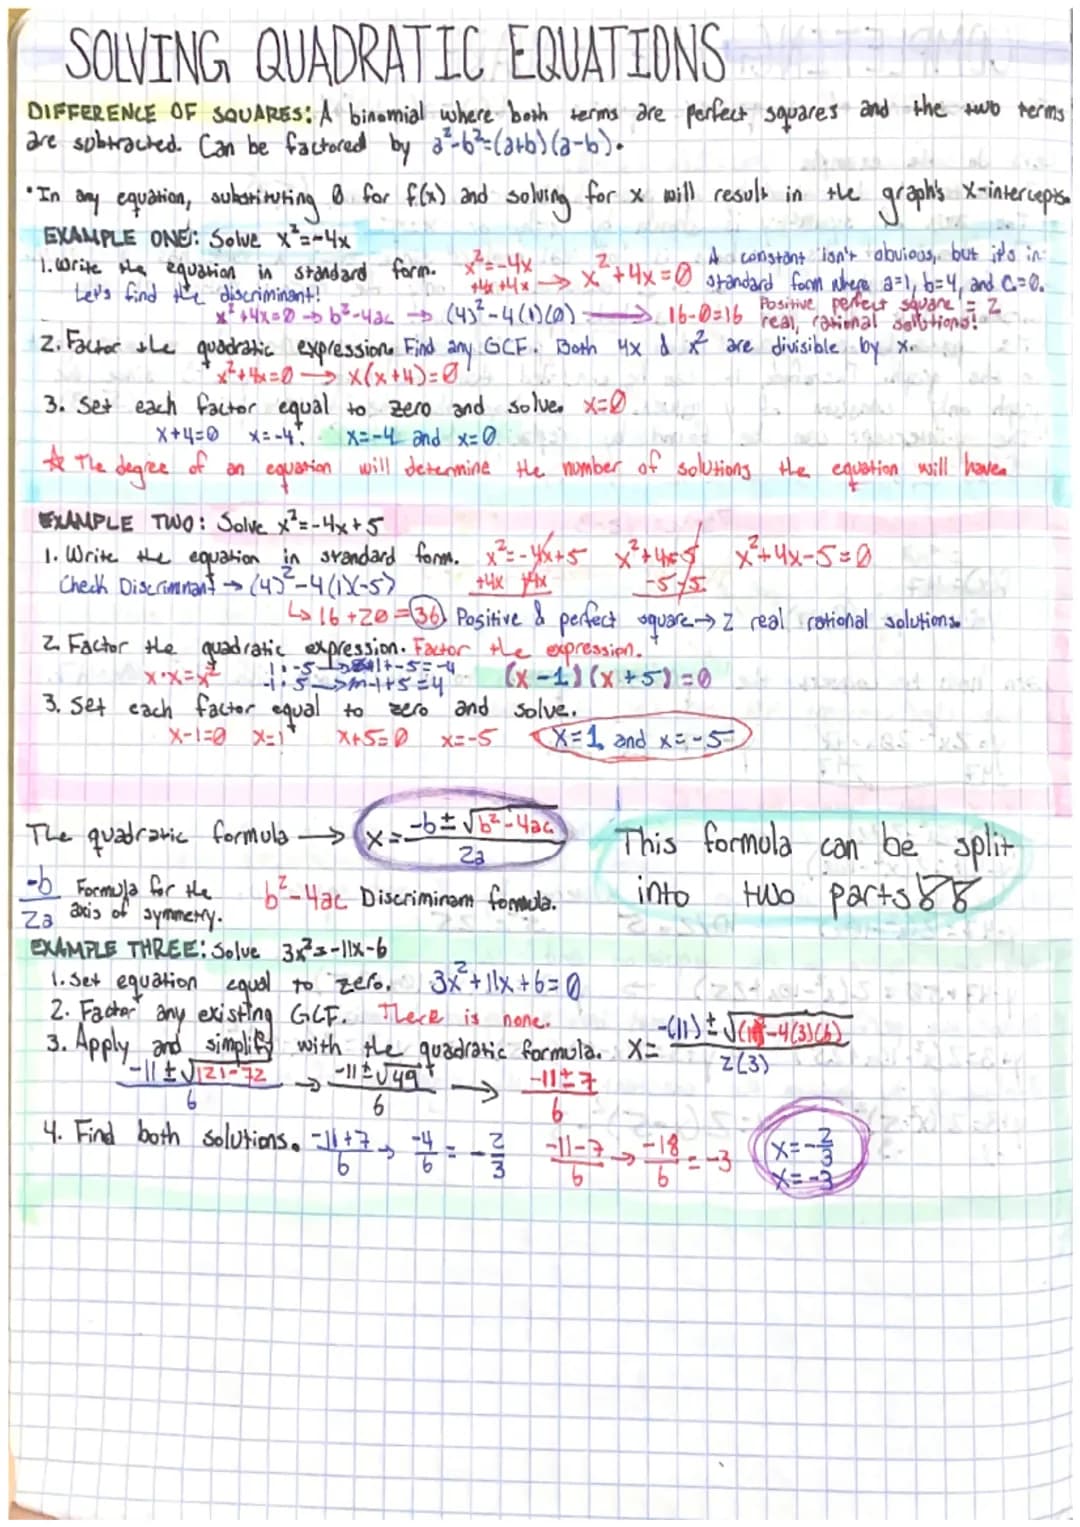 SOLVING QUADRATIC EQUATIONS
DIFFERENCE OF SQUARES: A binomial where both terms are perfect squares and the two terms
are subtracted. Can be factored by a²-b²=(a+b)(a-b).
•In any equation, substituting 0 for f(x) and solving for x will result in the graph's x-intercepts.
EXAMPLE ONE: Solve x²=-4x
1. Write the equation in standard form. x²=-4x → x²+4x=0 A constant isn't obvious, but it's in
+4x +4x standard form where a=1, b=4, and c=0.
Let's find the discriminant!
x²+4x=0 → b²-4ac → (4)²-4(1)(0) → 16-0=16 Positive perfect square = 2
real, rational solutions!
2. Factor the quadratic expression. Find any GCF. Both 4x & x² are divisible by x.
x²+4x=0 → x(x+4)=0
3. Set each factor equal to zero and solve. x=0
x+4=0 x=-4. x=-4 and x=0
☆ The degree of an equation will determine the number of solutions the equation will have.
EXAMPLE TWO: Solve x²=-4x+5
1. Write the equation in standard form. x²=-4x+5 x²+4x=5 x²+4x-5=0
+4x +4x -5 -5
Check Discriminant → (4)²-4(1)(-5)
↳ 16+20=36 Positive & perfect square → 2 real rational solutions.
2. Factor the quadratic expression. Factor the expression.
x•x=x² 1•-5 → 1+-5=-4 (x-1)(x+5)=0
-1•5 → -1+5=4
3. Set each factor equal to zero and solve.
x-1=0 x=1 x+5=0 x=-5 x=1, and x=-5
The quadratic formula → x= -b±√b²-4ac / 2a
This formula can be split
into two parts
-b/2a Formula for the axis of symmetry.
b²-4ac Discriminant formula.
EXAMPLE THREE: Solve 3x²=-11x-6
1. Set equation equal to zero. 3x²+11x+6=0
2. Factor any existing GCF. There is none.
3. Apply and simplify with the quadratic formula. x= -(11)±√(11²-4(3)(6)) / 2(3)
-11±√121-72 / 6 → -11±√49 / 6 → -11±7 / 6
4. Find both solutions. -11+7 / 6 → -4/6 = -2/3 -11-7 / 6 → -18/6 = -3
x=-2/3
x=-3